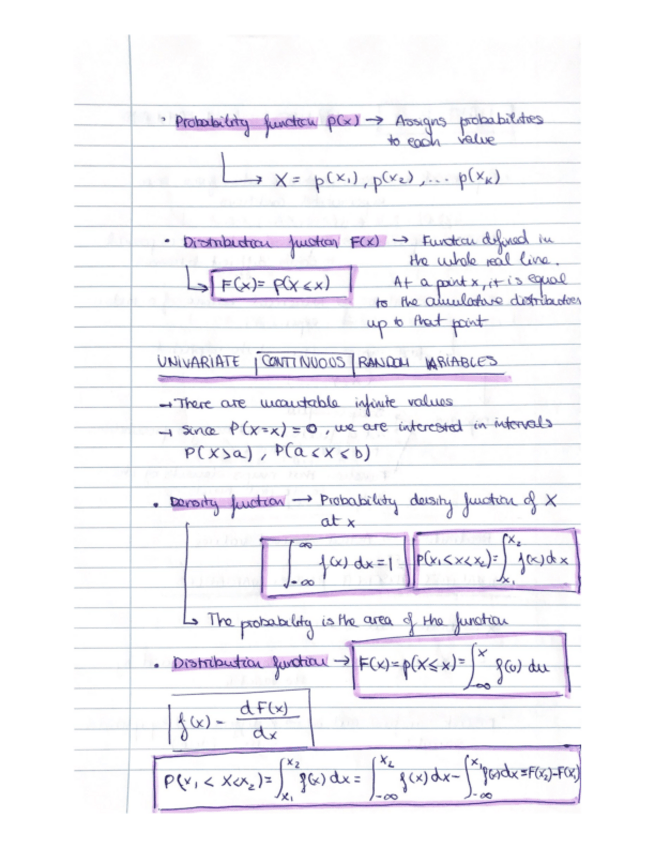 • Probability function p(x) → Assigns probabilities
to each value
↳ X = p(x₁), p(x₂), ... p(xₖ)
• Distribution function F(x) → Function defined in
the whole real line.
↳ F(x) = P(X ≤ x)
At a point x, it is equal
to the cumulative distribution
up to that point
UNIVARIATE CONTINUOUS RANDOM VARIABLES
→ There are uncoutable infinite values
→ Since P(X=x) = 0, we are interested in intervals
P(X>a), P(a<X<b)
• Density function → Probability density function of X
at x
∫_{-∞}^{∞} f(x) dx = 1 P(x₁<X<x₂) = ∫_{x₁}^{x₂} f(x) dx
↳ The probability is the area of the function
• Distribution function → F(x) = p(X≤x) = ∫_{-∞}^{x} f(u) du
f(x) - dF(x)/dx
P(x₁ < X<x₂) = ∫_{x₁}^{x₂} f(x) dx = ∫_{-∞}^{x₂} f(x) dx - ∫_{-∞}^{x₁} f(x) dx = F(x₂)-F(x₁)